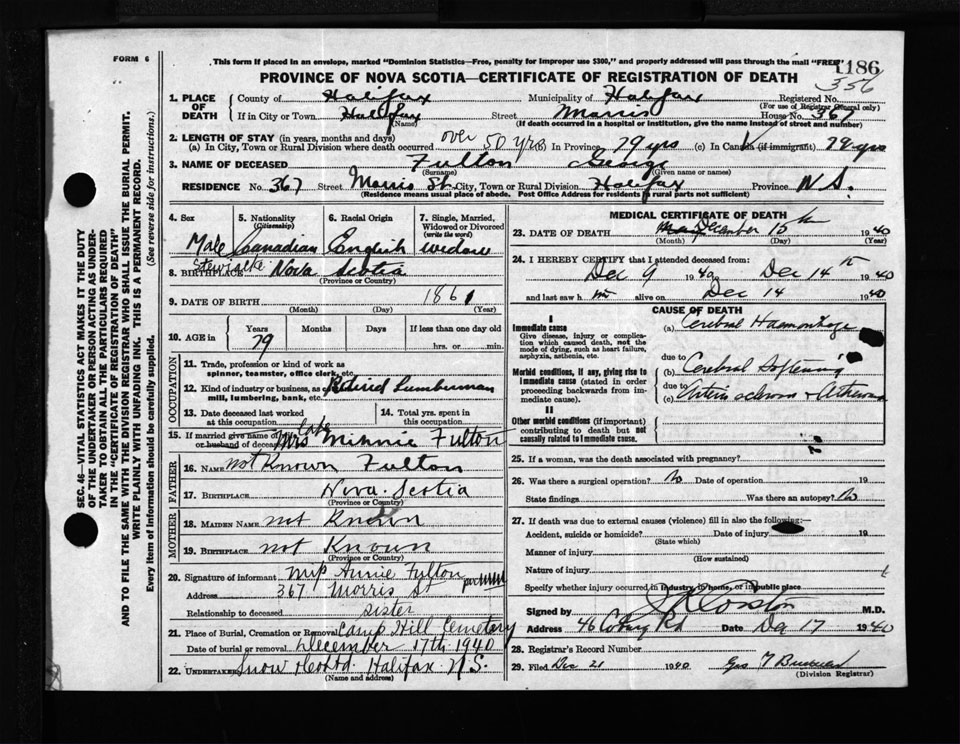 FORM 6
This form if placed in an envelope, marked "Dominion Statistics—Free, penalty for improper use $300," and properly addressed will pass through the mail "FREE"
1186
356
PROVINCE OF NOVA SCOTIA—CERTIFICATE OF REGISTRATION OF DEATH
1. PLACE OF DEATH
County of Halifax Municipality of Halifax Registered No.
(For use of Registrar General only)
If in City or Town Halifax Street Morris House No. 367
(Name) (If death occurred in a hospital or institution, give the name instead of street and number)
2. LENGTH OF STAY (in years, months and days)
(a) In City, Town or Rural Division where death occurred over 50 yrs In Province 79 yrs (c) In Canada (if immigrant) 79 yrs
3. NAME OF DECEASED Fulton George
(Surname) (Given name or names)
RESIDENCE No. 367 Street Morris St. City, Town or Rural Division Halifax Province N.S.
(Residence means usual place of abode. Post Office Address for residents in rural parts not sufficient)
4. Sex 5. Nationality (Citizenship) 6. Racial Origin 7. Single, Married, Widowed or Divorced (write the word)
Male Canadian English widow
8. BIRTHPLACE Stewiacke Nova Scotia
(Province or Country)
9. DATE OF BIRTH 1861
(Month) (Day) (Year)
10. AGE in Years Months Days If less than one day old
79 hrs. or min.
OCCUPATION
11. Trade, profession or kind of work as spinner, teamster, office clerk, etc.
12. Kind of industry or business, as mill, lumbering, bank, etc. Retired Lumberman
13. Date deceased last worked at this occupation 14. Total yrs. spent in this occupation
15. If married give name of husband of deceased late Mrs Minnie Fulton
FATHER
16. NAME not Known Fulton
17. BIRTHPLACE Nova Scotia
(Province or Country)
MOTHER
18. MAIDEN NAME not Known
19. BIRTHPLACE not Known
(Province or Country)
20. Signature of informant Annie Fulton
Address 367 Morris St
Relationship to deceased sister
21. Place of Burial, Cremation or Removal Camp Hill Cemetery
Date of burial or removal December 17th 1940
22. UNDERTAKER Snow Halifax N.S.
(Name and address)
MEDICAL CERTIFICATE OF DEATH
23. DATE OF DEATH December 15 1940
(Month) (Day) (Year)
24. I HEREBY CERTIFY that I attended deceased from:
Dec 9 1940 Dec 14 1940
and last saw him alive on Dec 14 1940
CAUSE OF DEATH
I
Immediate cause
Give disease, injury or complication which caused death, not the mode of dying, such as heart failure, asphyxia, asthenia, etc.
(a) Cerebral Haemorrhage
due to
Morbid conditions, if any, giving rise to immediate cause (stated in order proceeding backwards from immediate cause).
(b) Cerebral Softening
due to
(c)
II
Other morbid conditions (if important) contributing to death but not causally related to immediate cause.
(d)
25. If a woman, was the death associated with pregnancy?
26. Was there a surgical operation? No Date of operation 19
State findings Was there an autopsy? No
27. If death was due to external causes (violence) fill in also the following:—
Accident, suicide or homicide? Date of injury 19
(State which)
Manner of injury
(How sustained)
Nature of injury
Specify whether injury occurred in industry, in home, or in public place
Signed by M.D.
Address 46 Coburg Rd Date Dec 17 1940
28. Registrar's Record Number
29. Filed Dec 21 1940
(Division Registrar)
SEC. 46—VITAL STATISTICS ACT MAKES IT THE DUTY
OF THE UNDERTAKER OR PERSON ACTING AS UNDER-
TAKER TO OBTAIN ALL THE PARTICULARS REQUIRED
IN THE "CERTIFICATE OF REGISTRATION OF DEATH"
AND TO FILE THE SAME WITH THE DIVISION REGISTRAR WHO SHALL ISSUE THE BURIAL PERMIT.
WRITE PLAINLY WITH UNFADING INK. THIS IS A PERMANENT RECORD.
Every item of Information should be carefully supplied. (See reverse side for instructions.)